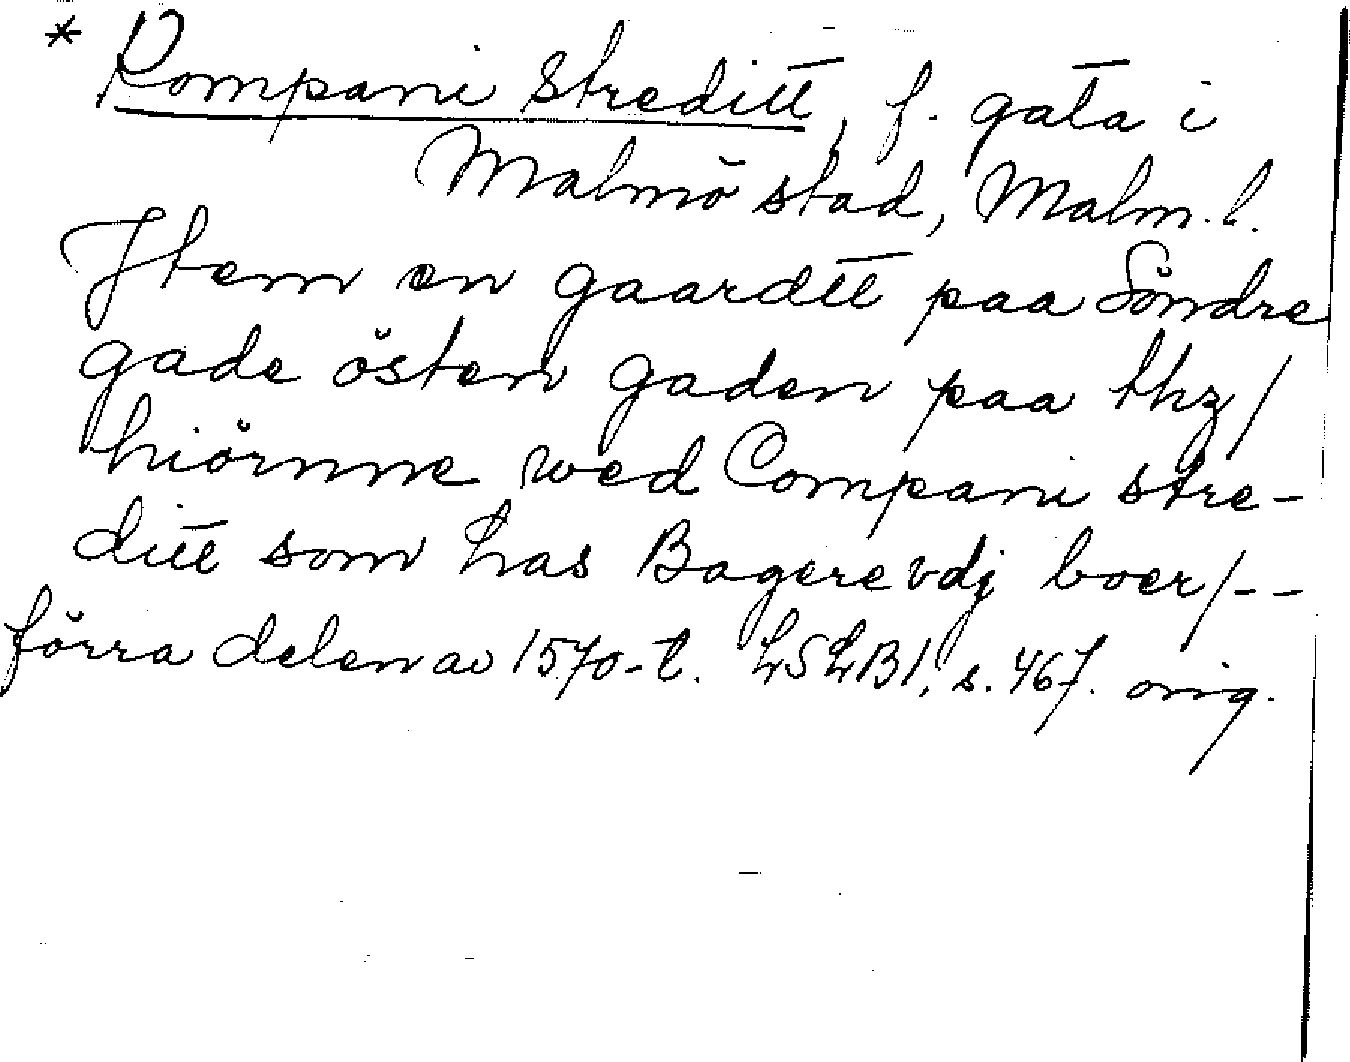 * Kompani streditt, f. gata i
Malmö stad, Malm. l.
Jtem en gaardtt paa Söndre
gade östen gaden paa thz/
hiörnne wed Compani stre-
ditt som has Bagere vdj boer/--
förra delen av 1570-t. LSLB1, s. 467. orig.